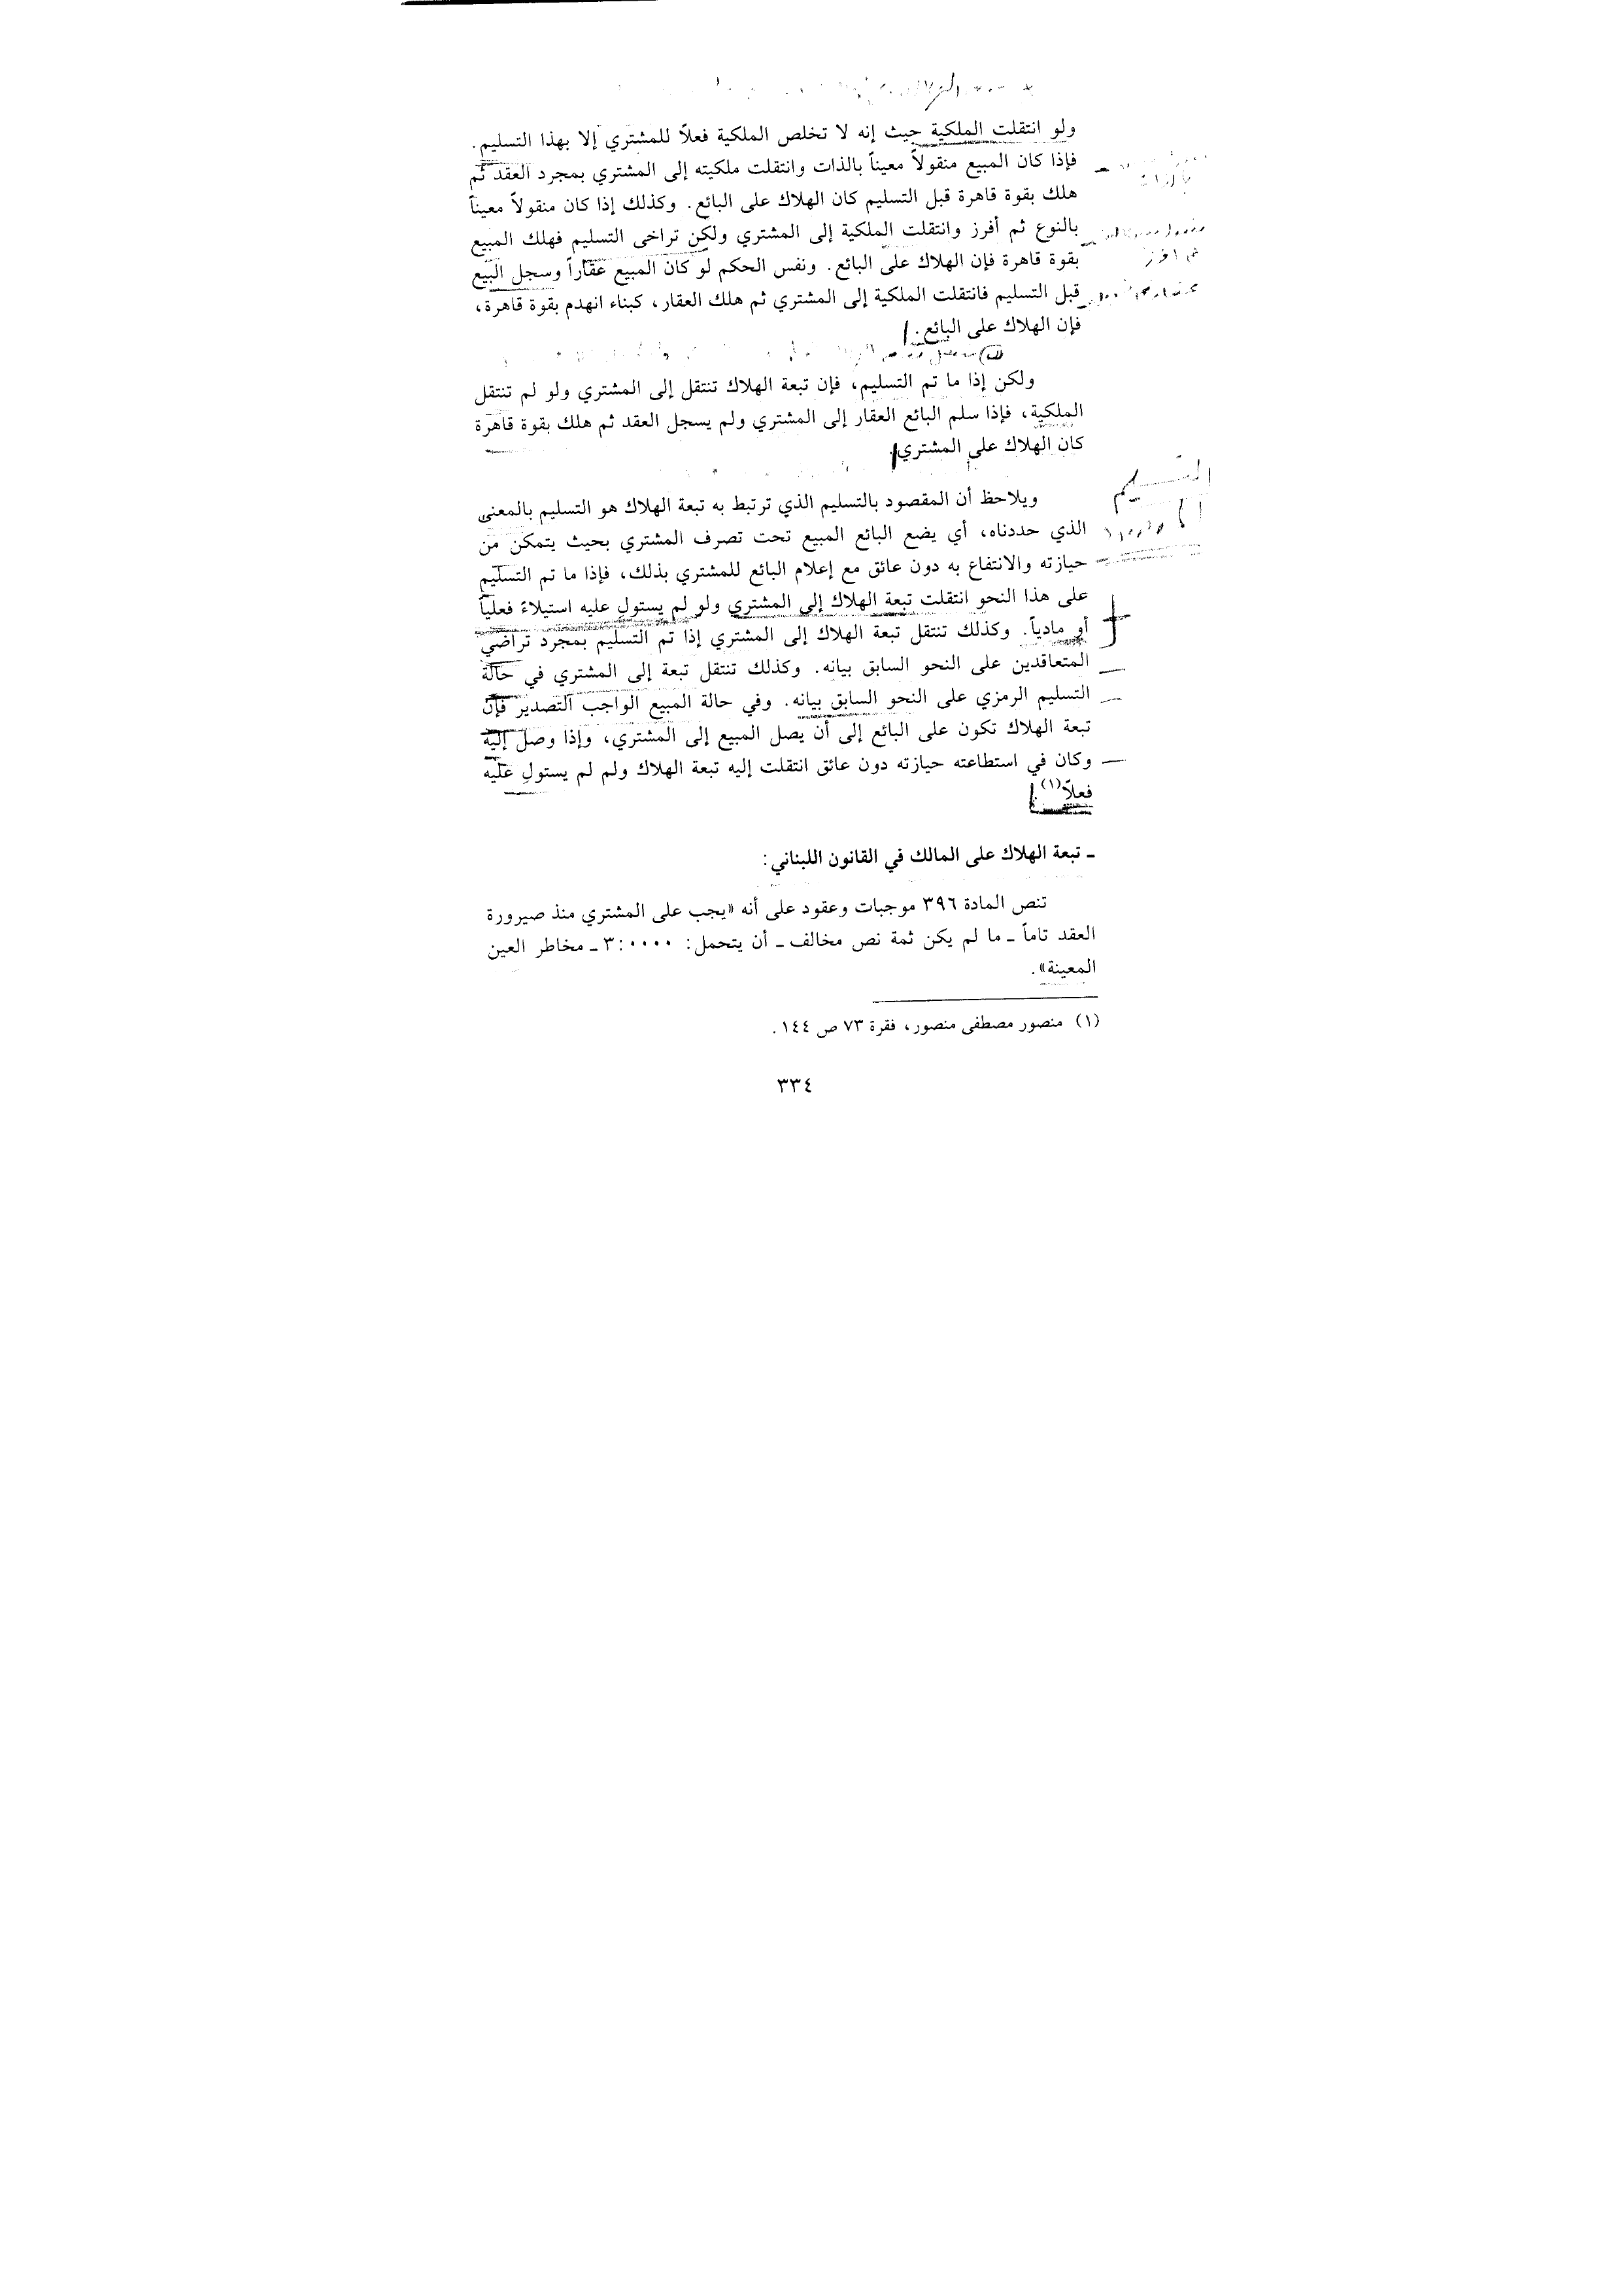 ولو انتقلت الملكية حيث إنه لا تخلص الملكية فعلاً للمشتري إلا بهذا التسليم.
فإذا كان المبيع منقولاً معيناً بالذات وانتقلت ملكيته إلى المشتري بمجرد العقد ثم
هلك بقوة قاهرة قبل التسليم كان الهلاك على البائع. وكذلك إذا كان منقولاً معيناً
بالنوع ثم أفرز وانتقلت الملكية إلى المشتري ولكن تراخى التسليم فهلك المبيع
بقوة قاهرة فإن الهلاك على البائع. ونفس الحكم لو كان المبيع عقاراً وسجل البيع
قبل التسليم فانتقلت الملكية إلى المشتري ثم هلك العقار، كبناء انهدم بقوة قاهرة،
فإن الهلاك على البائع.
ولكن إذا ما تم التسليم، فإن تبعة الهلاك تنتقل إلى المشتري ولو لم تنتقل
الملكية، فإذا سلم البائع العقار إلى المشتري ولم يسجل العقد ثم هلك بقوة قاهرة
كان الهلاك على المشتري.
التسليم
ويلاحظ أن المقصود بالتسليم الذي ترتبط به تبعة الهلاك هو التسليم بالمعنى
الذي حددناه، أي يضع البائع المبيع تحت تصرف المشتري بحيث يتمكن من
حيازته والانتفاع به دون عائق مع إعلام البائع للمشتري بذلك، فإذا ما تم التسليم
على هذا النحو انتقلت تبعة الهلاك إلى المشتري ولو لم يستولِ عليه استيلاءً فعلياً
أو مادياً. وكذلك تنتقل تبعة الهلاك إلى المشتري إذا تم التسليم بمجرد تراضي
المتعاقدين على النحو السابق بيانه. وكذلك تنتقل تبعة إلى المشتري في حالة
التسليم الرمزي على النحو السابق بيانه. وفي حالة المبيع الواجب التصدير فإن
تبعة الهلاك تكون على البائع إلى أن يصل المبيع إلى المشتري، وإذا وصل إليه
وكان في استطاعته حيازته دون عائق انتقلت إليه تبعة الهلاك ولم لم يستولِ عليه
فعلاً(١).
ـ تبعة الهلاك على المالك في القانون اللبناني:
تنص المادة ٣٩٦ موجبات وعقود على أنه «يجب على المشتري منذ صيرورة
العقد تاماً ـ ما لم يكن ثمة نص مخالف ـ أن يتحمل: ٣:٠٠٠٠ ـ مخاطر العين
المعينة».
(١) منصور مصطفى منصور، فقرة ٧٣ ص ١٤٤.
٣٣٤